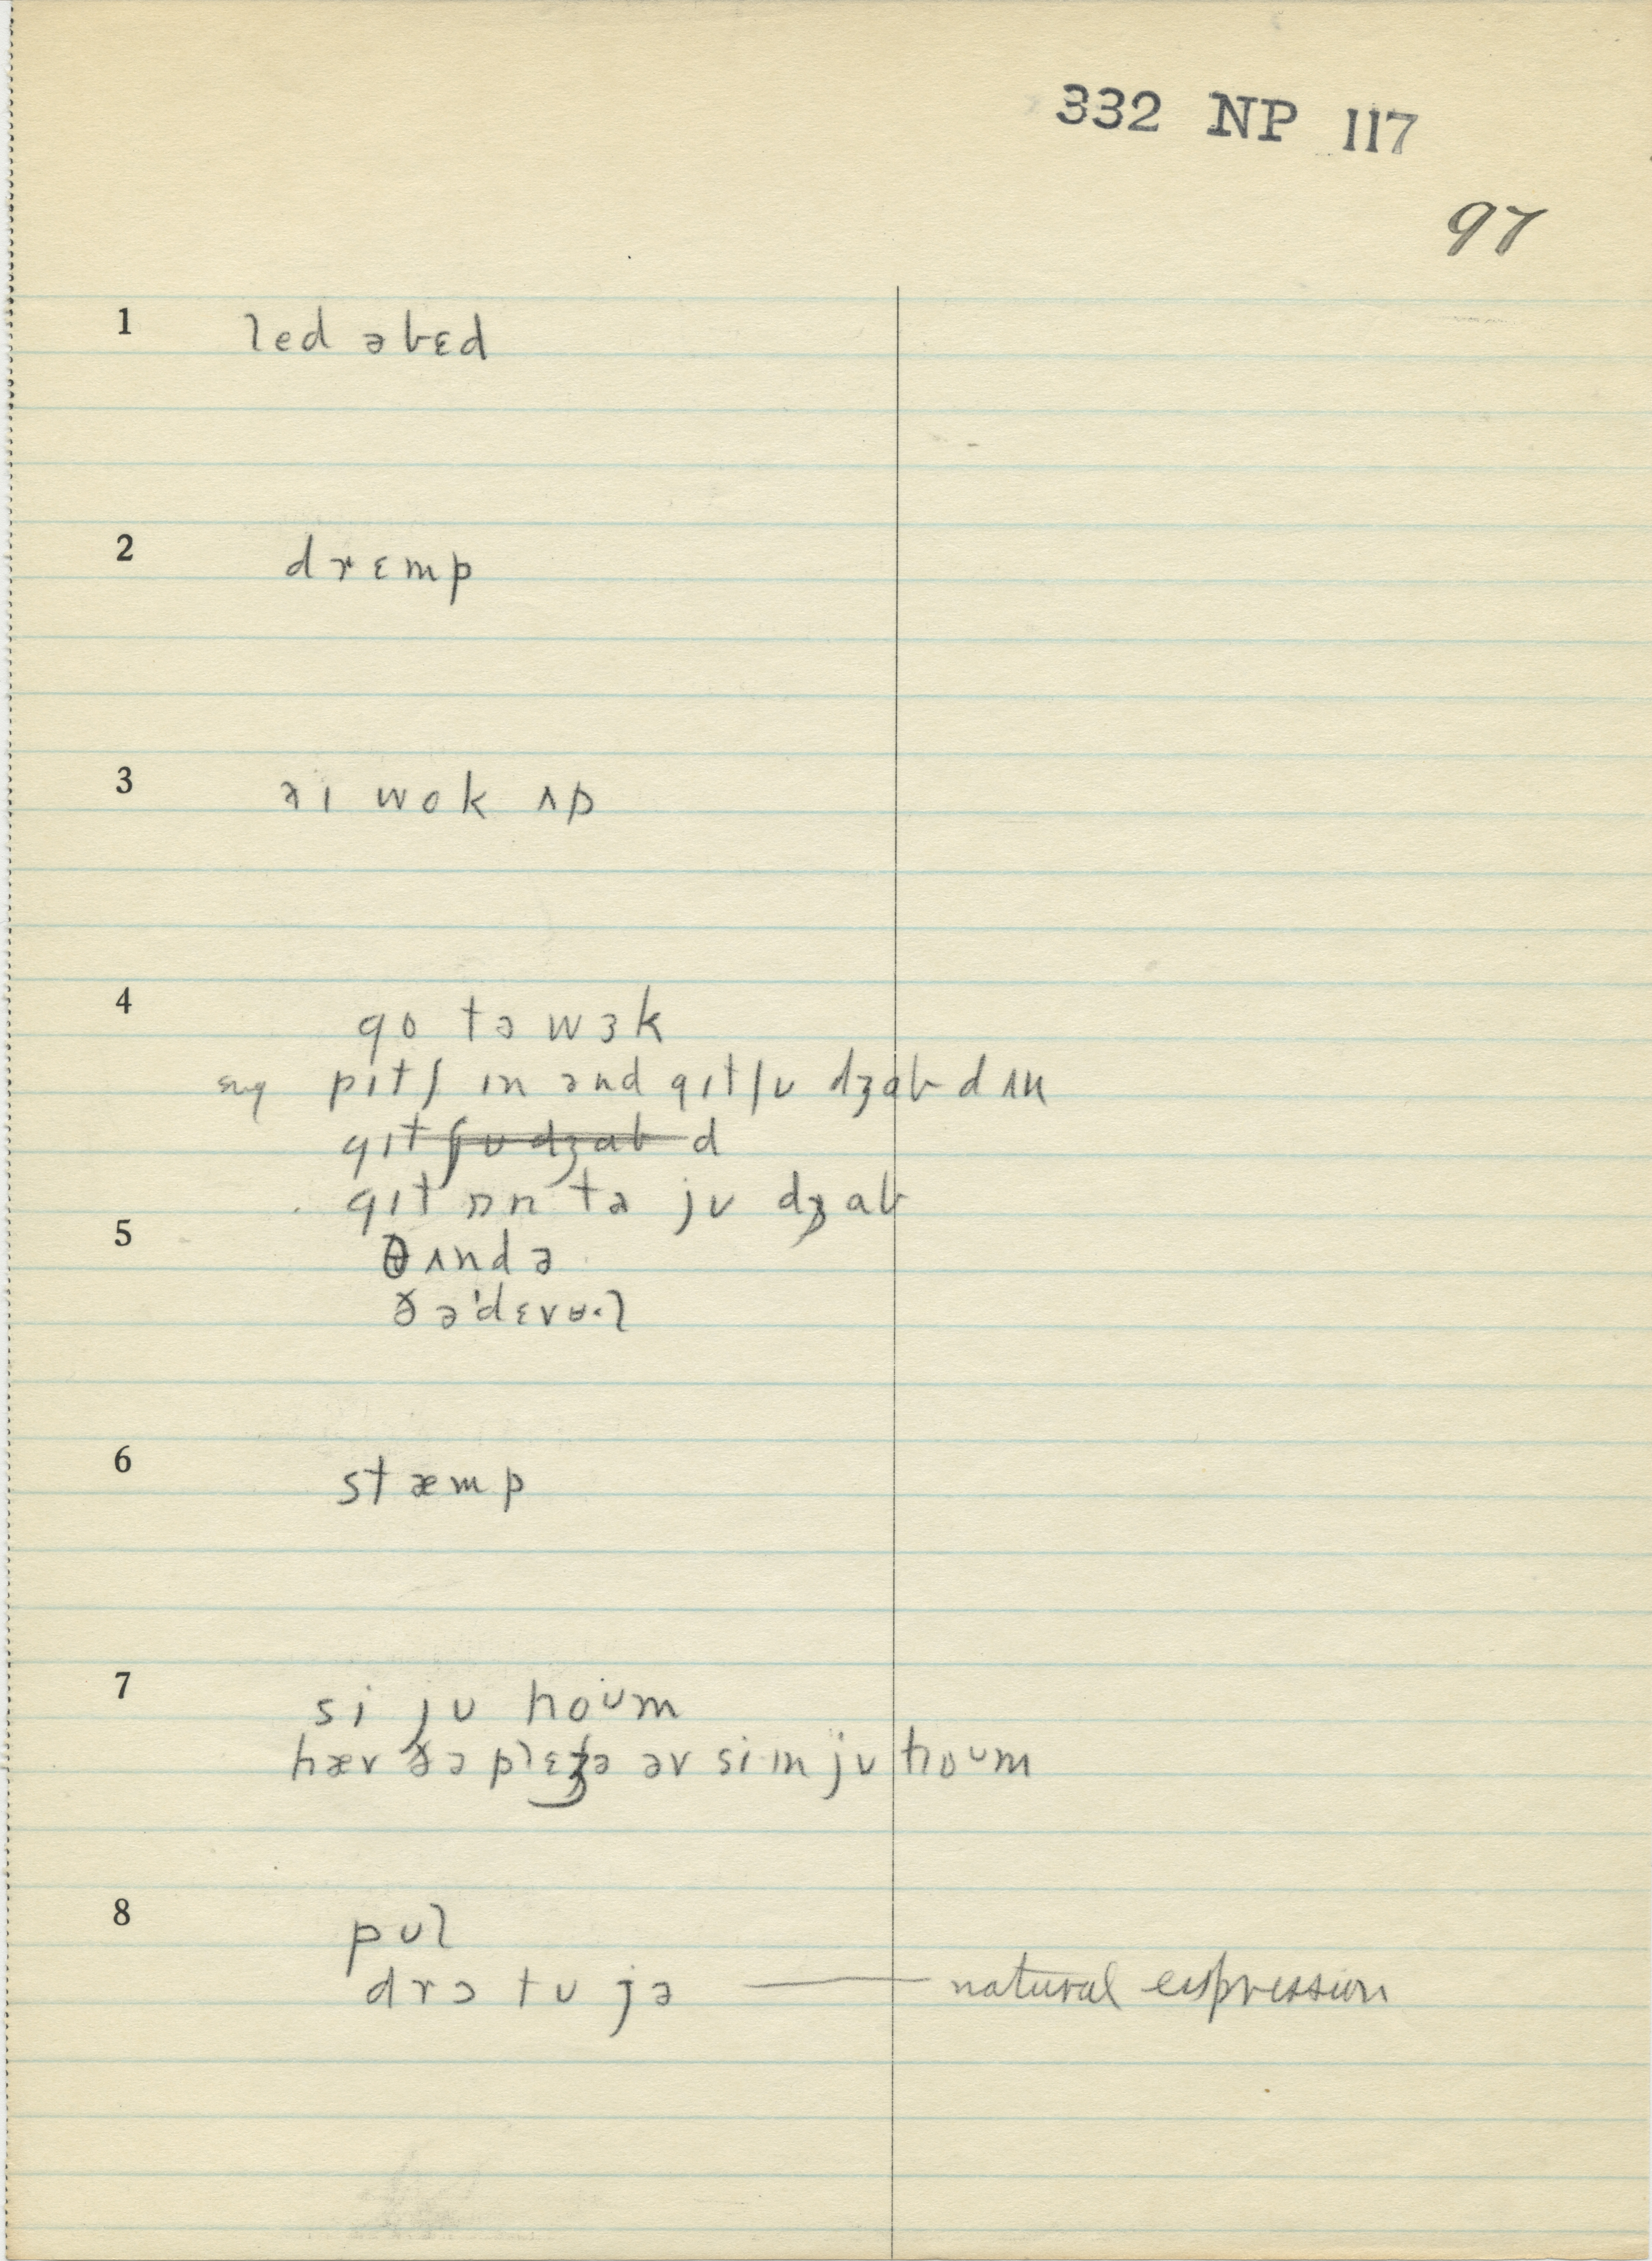 332 NP 117
97
1 led əbɛd
2 drɛmp
3 əɪ wok ʌp
4 go tə wɜk
sug pɪtʃ ɪn ənd gɪtʃʊ dʒab dʌn
gɪtʃʊ dʒab d
gɪt ɒn tə jʊ dʒab
5 θʌndə
ðə'dɛvʉ·l
6 stæmp
7 si jʊ hoᴜm
hæv ðə plɛʒə əv si·ɪn jʊ hoᴜm
8 pʊl
drɔ tʊ jə —— natural expression